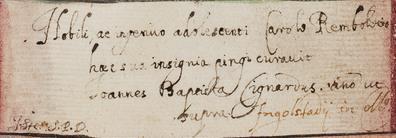 Nobili ac ingenuo adolescenti Carolo Remboldo
haec sua insignia pingi curavit
Joannes Baptista anno ut
supra Ingolstadij in